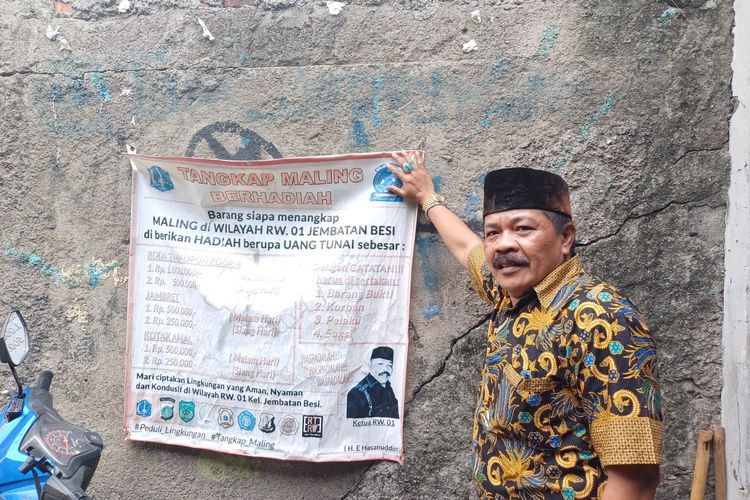 TANGKAP MALING
BERHADIAH
Barang siapa menangkap
MALING di WILAYAH RW. 01 JEMBATAN BESI
di berikan HADIAH berupa UANG TUNAI sebesar :
RODA 2
1. Rp. 1.000.000,-
2. Rp. 500.000,-
JAMBRET
1. Rp. 500.000,- (Malam Hari)
2. Rp. 250.000,- (Siang Hari)
KOTAK AMAL
1. Rp. 500.000,- (Malam Hari)
2. Rp. 250.000,- (Siang Hari)
Dengan CATATAN!!!
harus di sertakan
1. Barang Bukti
2. Korban
3. Pelaku
4. Saksi
WASPADALAH!!
WASPADALAH!!
WASPADALAH!!
Mari ciptakan Lingkungan yang Aman, Nyaman
dan Kondusif di Wilayah RW. 01 Kel. Jembatan Besi.
#Peduli_Lingkungan #Tangkap_Maling
Ketua RW. 01
( H. E Hasanuddin )